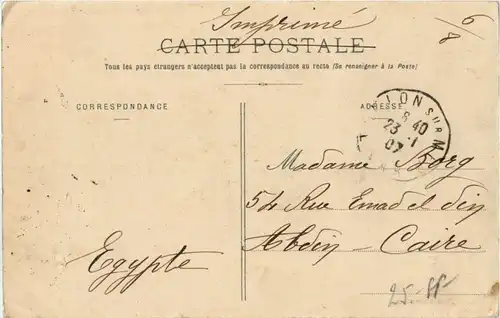 Imprimé
6/8
CARTE POSTALE
Tous les pays étrangers n'acceptent pas la correspondance au recto (Se renseigner à la Poste)
CORRESPONDANCE
ADRESSE
LON SUR M
8 40
23 -1
07
Madame Borg
54 Rue Emad el din
Abdin - Caire
Egypte
25.-FF